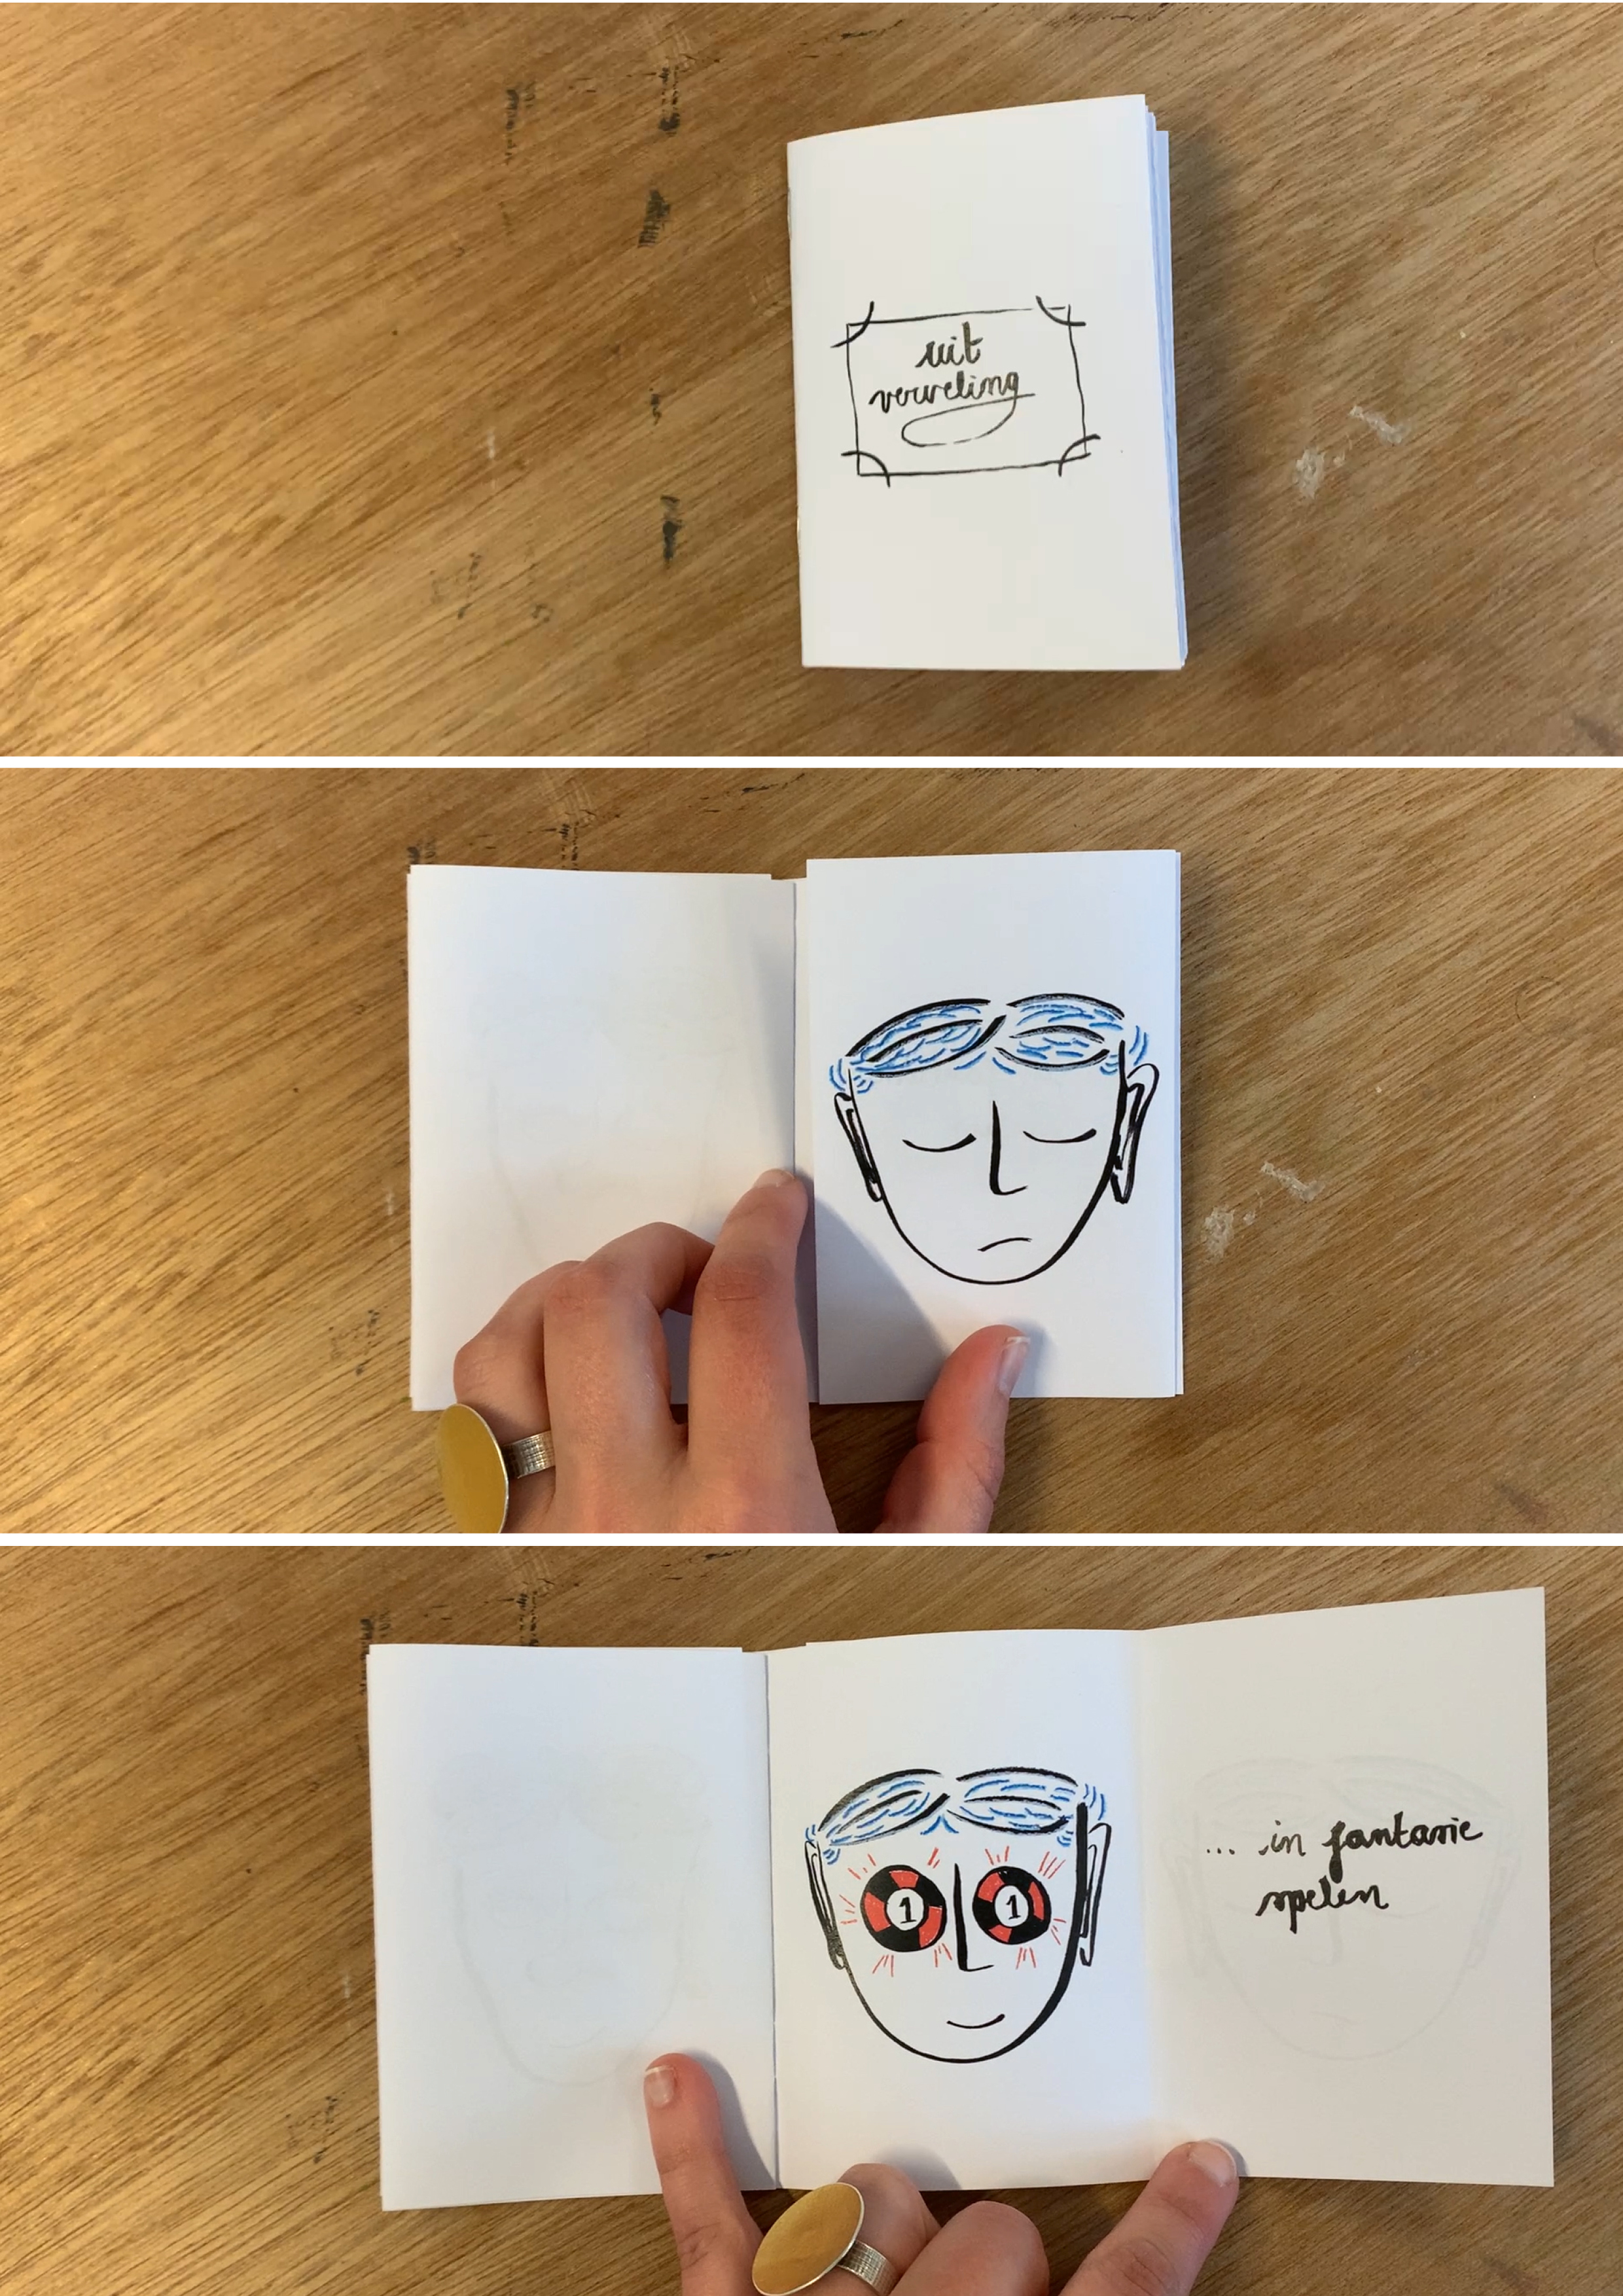 uit
verveling
1 1
... in fantasie
spelen